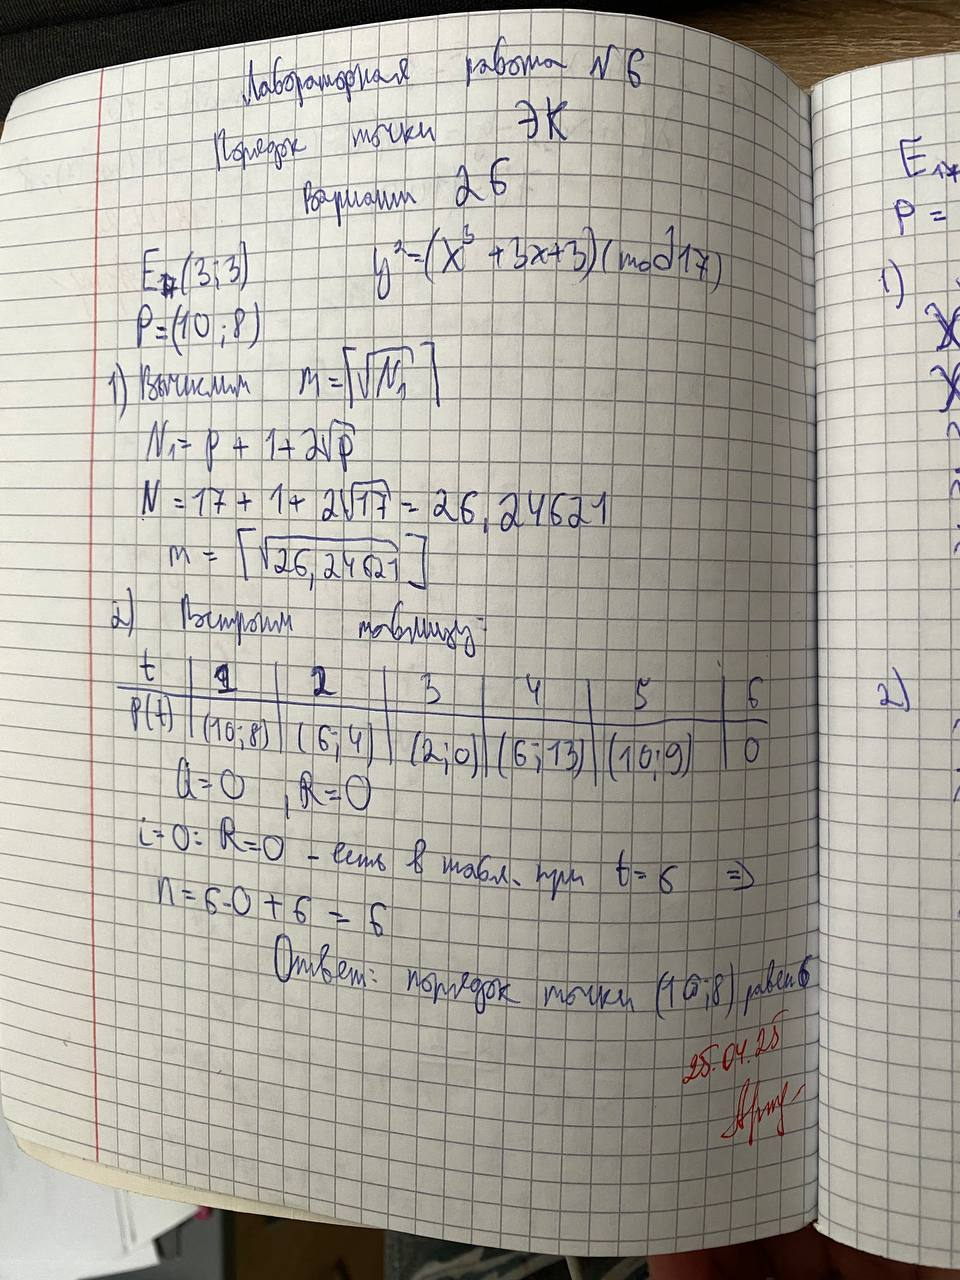 Лабораторная работа №6
Порядок точки ЭК
Вариант 26
E₁₇(3;3) y²=(x³+3x+3)(mod 17)
P=(10;8)
1) Вычислим m=⌈√N₁⌉
N₁= p + 1+ 2√p
N = 17 + 1 + 2√17 = 26,24621
m = ⌈√26,24621⌉
2) Построим таблицу:
t | 1 | 2 | 3 | 4 | 5 | 6
P(t) | (10;8) | (6;4) | (2;0) | (6;13) | (10;9) | 0
Q=0 , R=0
i=0: R=0 - есть в табл. при t=6 ⇒
n=6·0+6 = 6
Ответ: порядок точки (10;8) равен 6
25.04.25
E₁₇
P =
1)
2)